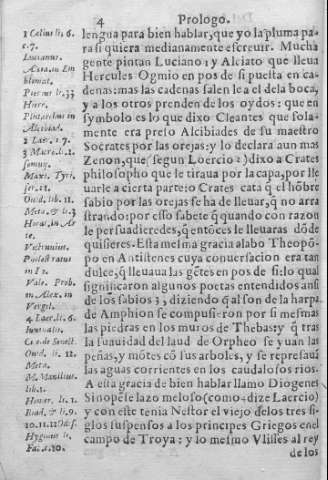 4 Prologo.
lengua para bien hablar, que yo la pluma pa-
ra si quiera medianamente escreuir. Mucha
gente pintan Luciano 1 y Alciato que lleua
Hercules Ogmio en pos de si puesta en ca-
denas: mas las cadenas salen le a el dela boca,
y a los otros prenden de los oydos: que en
symbolo es lo que dixo Cleantes que sola-
mente era preso Alcibiades de su maestro
Socrates por las orejas: y lo declara aun mas
Zenon, que (segun Loercio 2) dixo a Crates
philosopho que le tiraua por la capa, por lle
uarle a cierta parte: o Crates cata q̃ el hõbre
sabio por las orejas se ha de lleuar, q̃ no arra
strando: por esso sabete q̃ quando con razon
le persuadieredes, q̃ entõces le lleuaras dõde
quisieres. Esta mesma gracia alabo Theopõ-
po en Antistenes cuya conuersacion era tan
dulce, q̃ lleuaua las gẽtes en pos de si: lo qual
significaron algunos poetas entendidos ansi
de los sabios 3, diziendo q̃ al son de la harpa
de Amphion se compusieron por si mesmas
las piedras en los muros de Thebas: y q̃ tras
la suauidad del laud de Orpheo se yuan las
peñas, y mõtes cõ sus arboles, y se represauã
las aguas corrientes en los caudalosos rios.
A esta gracia de bien hablar llamo Diogenes
Sinopese lazo meloso (como dize Laercio)
y con este tenia Nestor el viejo delos tres si-
glos suspensos a los principes Griegos en el
campo de Troya: y lo mesmo Vlisses al rey
de los
1 Celius li. 6.
c. 7.
Lucianus.
Alcia. in Em
blemat.
Pierius li. 33
Plutarchus in
Alcibiad.
2 Laer. l. 7.
Maxi. Tyri.
ser.
Ouid. libr. 11.
Meta. & li. 3
Horat. in Ar
te.
Philostratus
Vale. Prob.
in Alex. in
Vergil.
4 Laer. li. 6.
Cic. de Senect.
Ouid. li. 12.
Meta.
M. Manilius.
lib. 1.
Homer. li. 1.
Iliad. & li. 9.
10. 11. 12 Odis.
Hyginus li.